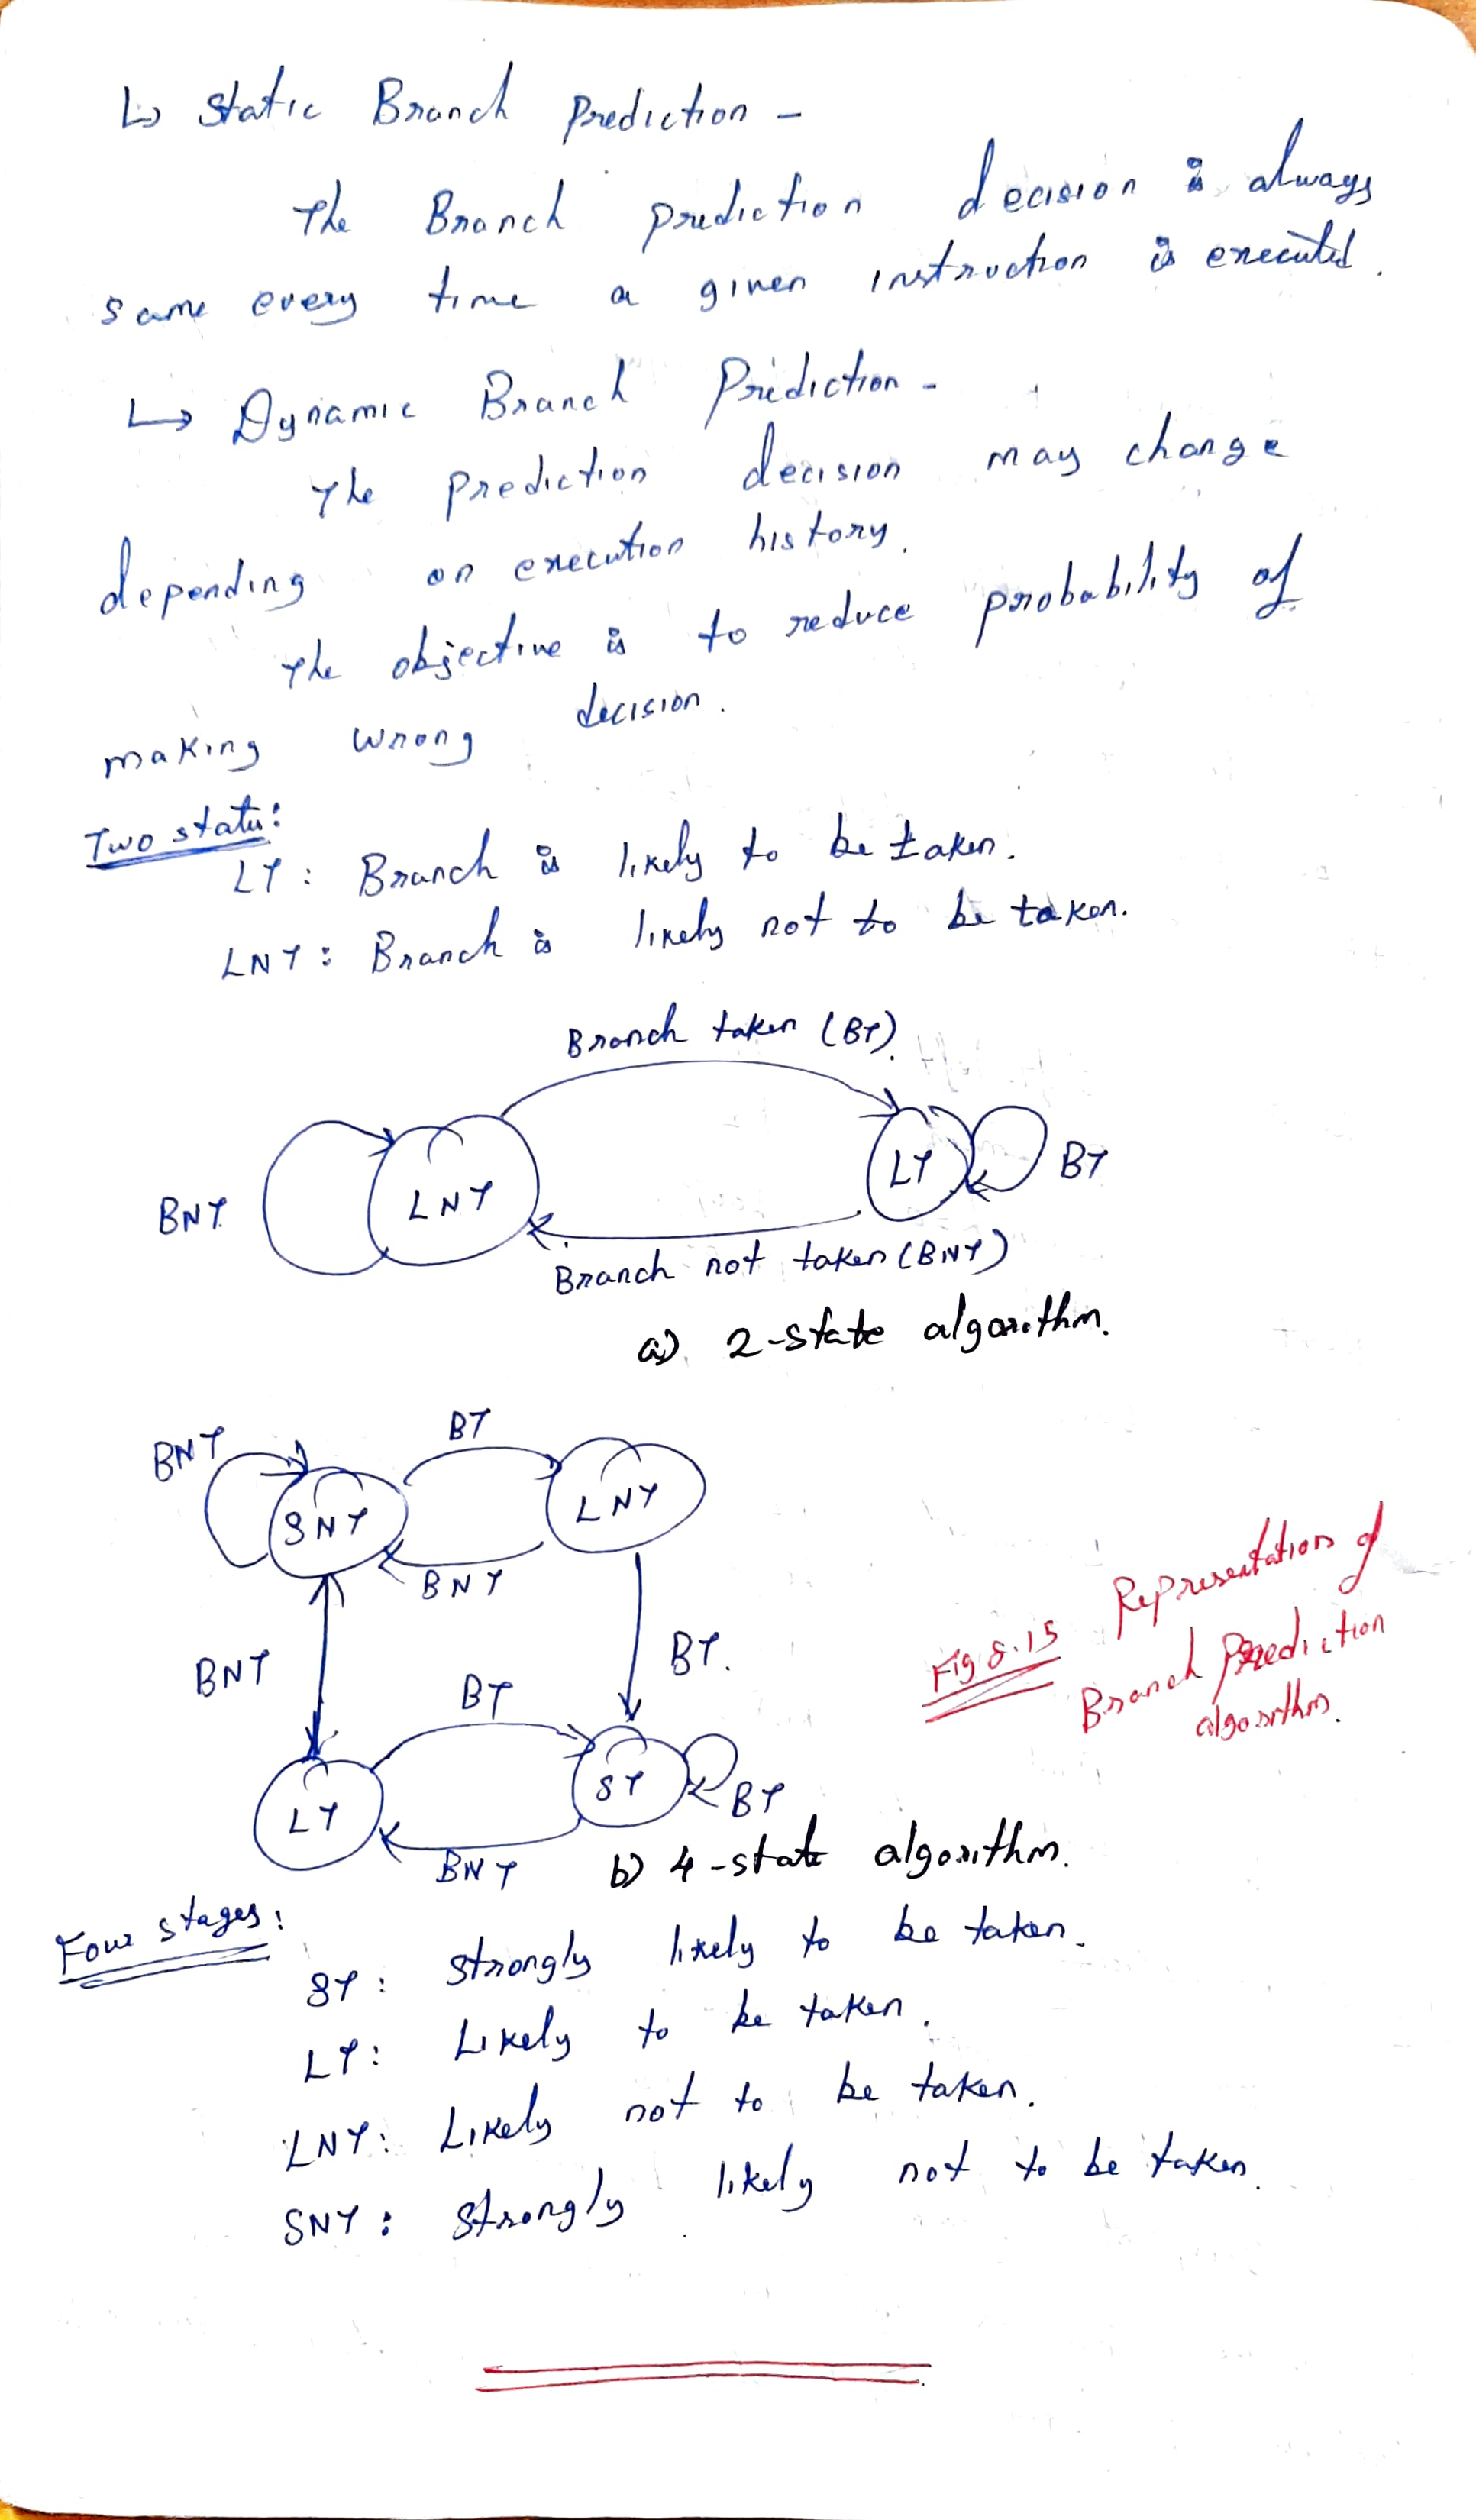 ↳ Static Branch Prediction -
The Branch prediction decision is always
same every time a given instruction is executed.
↳ Dynamic Branch Prediction -
The Prediction decision may change
depending on execution history.
The objective is to reduce probability of
making wrong decision.
Two state:
LT: Branch is likely to be taken.
LNT: Branch is likely not to be taken.
Branch taken (BT)
BNT
LNT
LT
BT
Branch not taken (BNT)
a) 2-state algorithm.
BNT
BT
SNT
LNT
BNT
BNT
BT.
BT
LT
ST
BT
BNT
b) 4-state algorithm.
Fig 8.15 Representation of
Branch Prediction
algorithm.
Four stages:
ST: Strongly likely to be taken.
LT: Likely to be taken.
LNT: Likely not to be taken.
SNT: Strongly likely not to be taken.